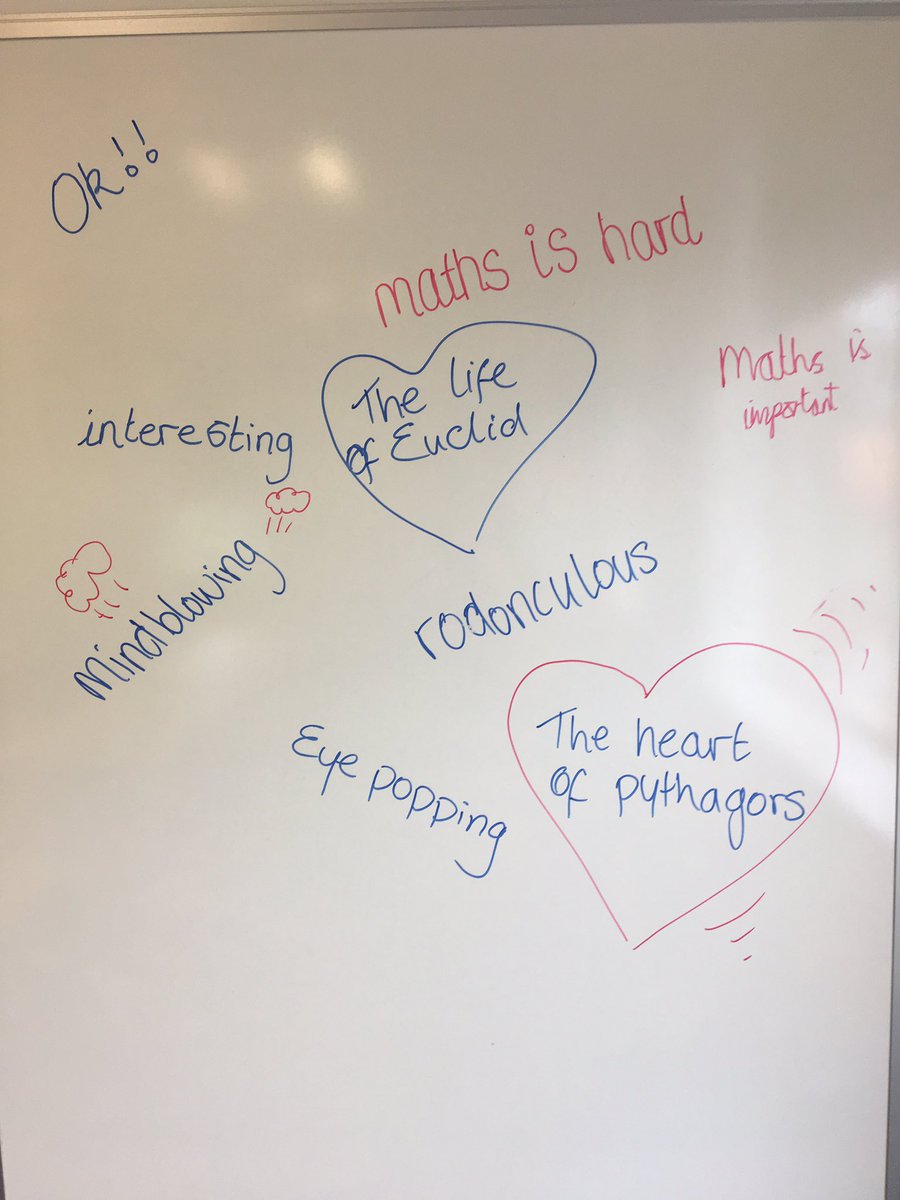 Ok!!
maths is hard
Maths is
important
The life
of Euclid
interesting
mindblowing
rodonculous
Eye popping
The heart
of pythagors